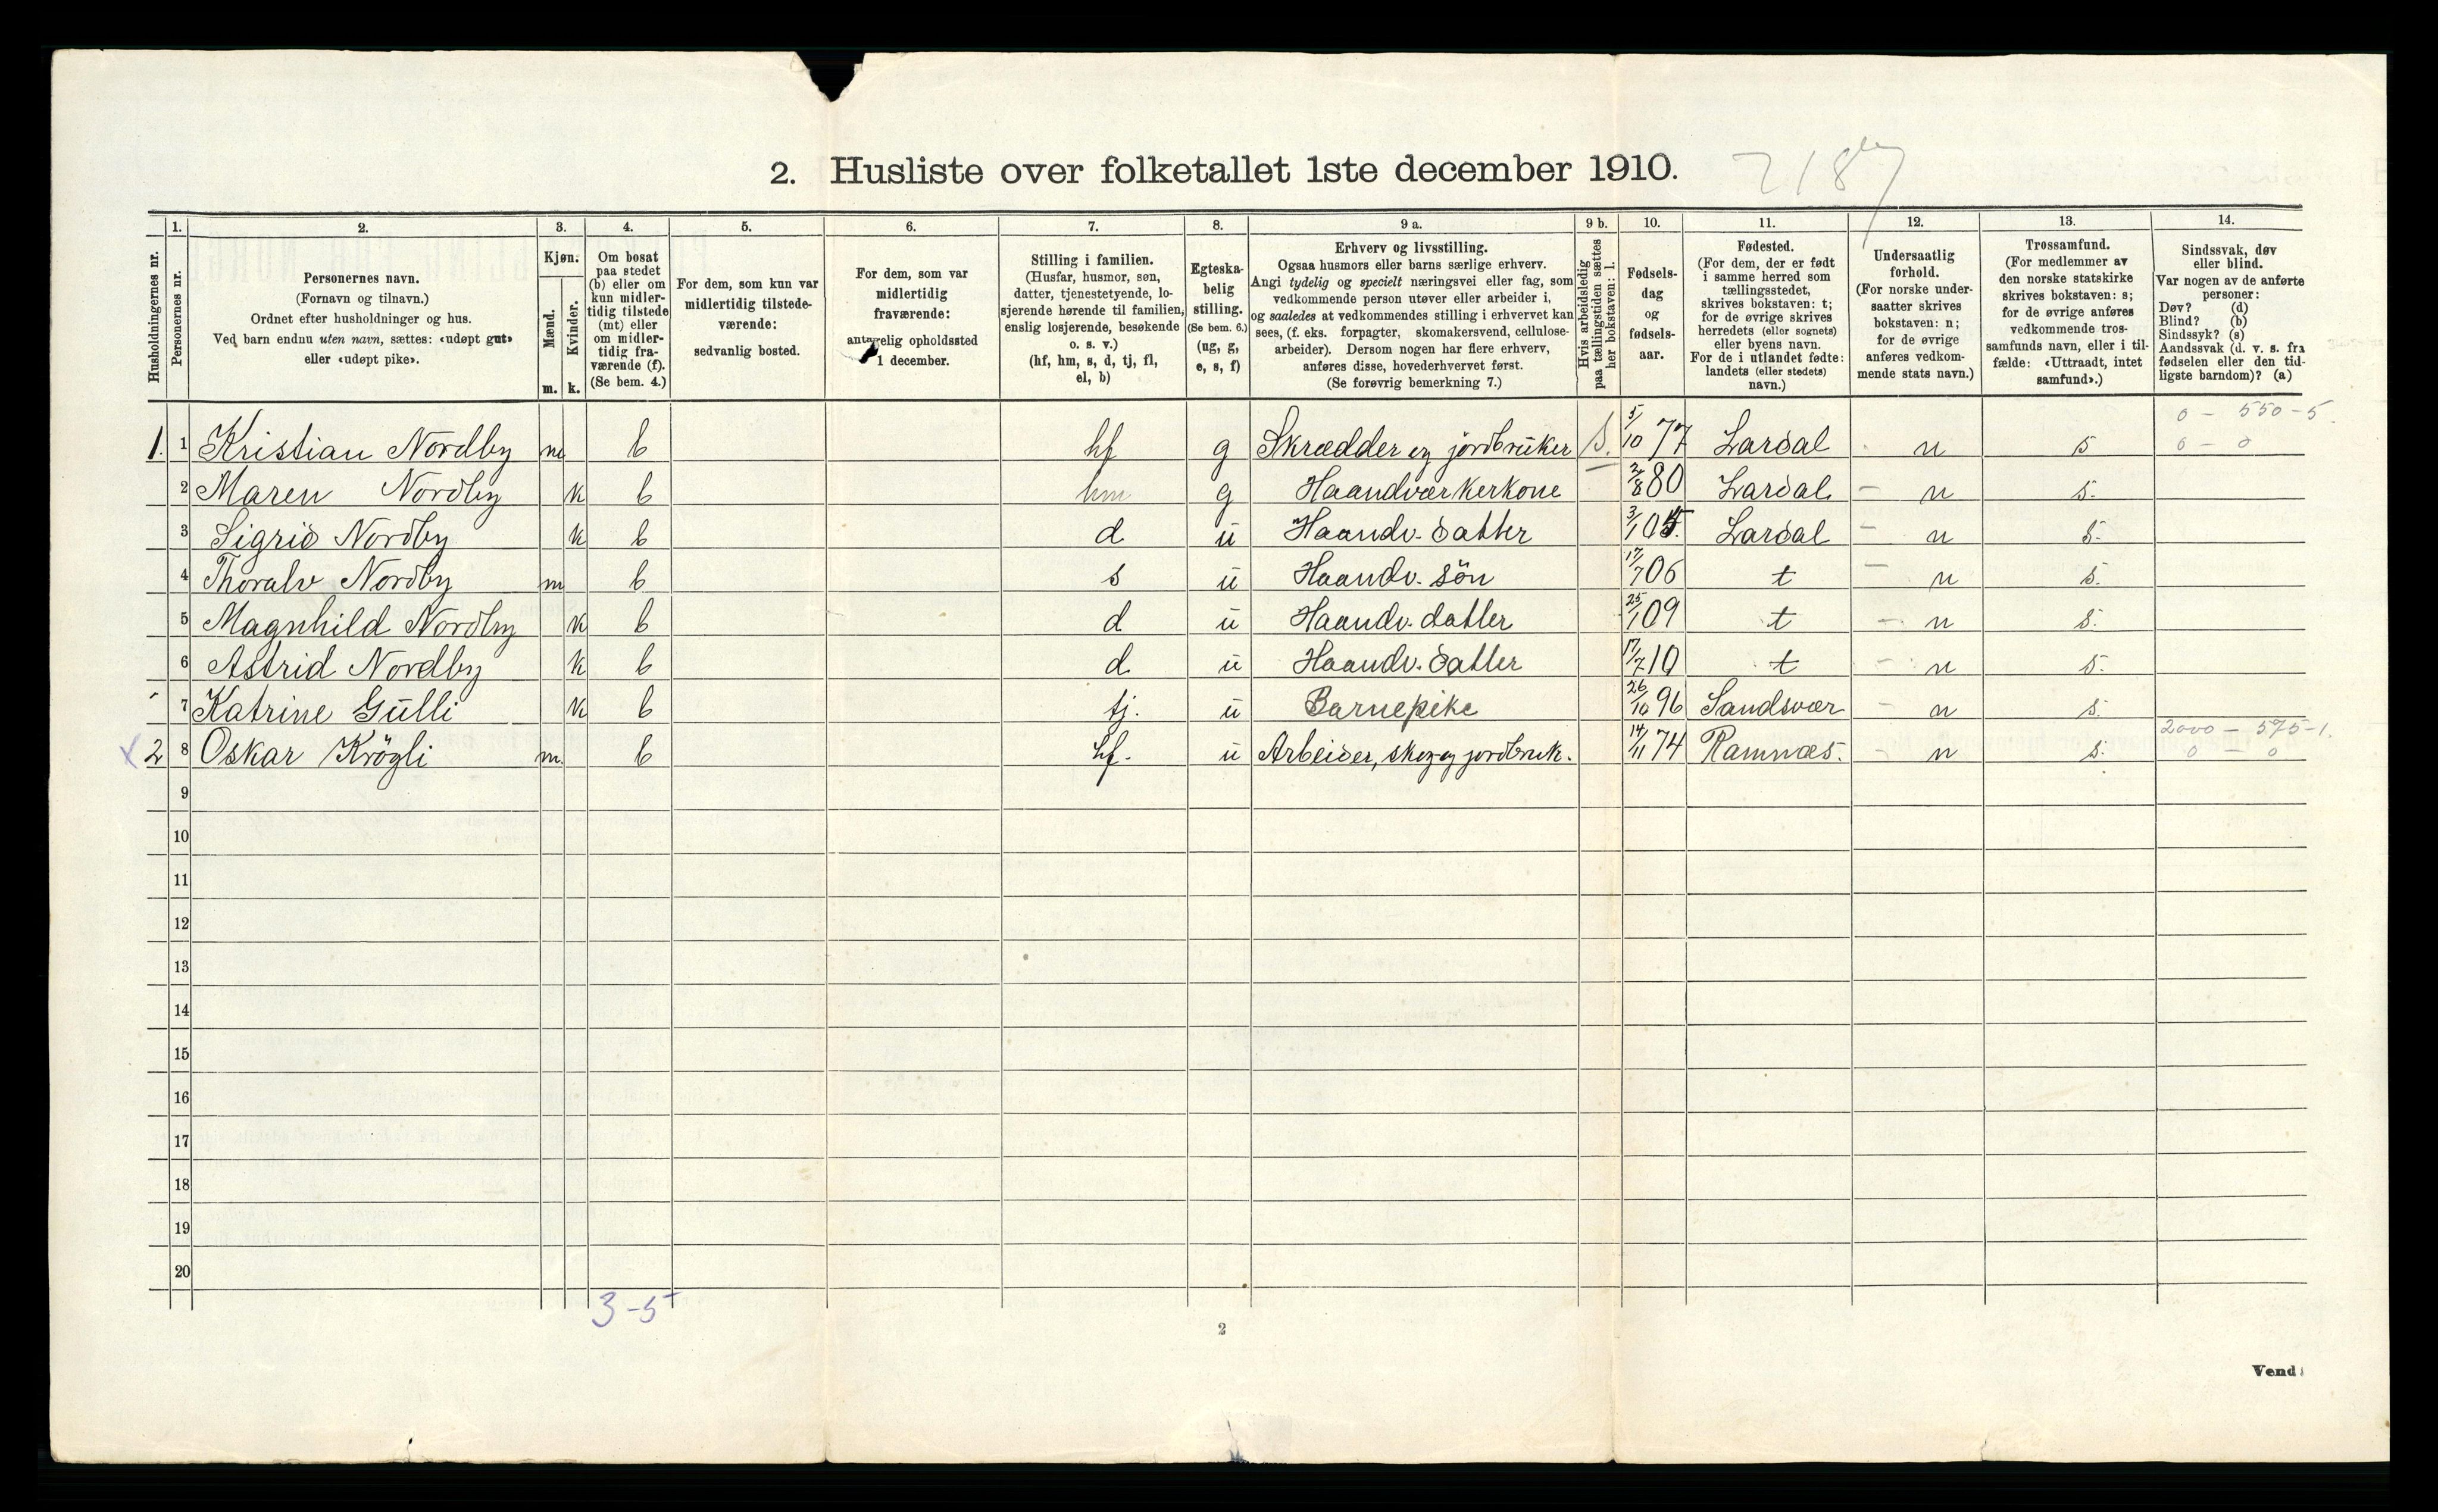 2. Husliste over folketallet 1ste december 1910.
1. 2. 3. 4. 5. 6. 7. 8. 9 a. 9 b. 10. 11. 12. 13. 14.
Husholdningernes nr.
Personernes nr.
Personernes navn.
(Fornavn og tilnavn.)
Ordnet efter husholdninger og hus.
Ved barn endnu uten navn, sættes: «udøpt gut»
eller «udøpt pike».
Kjøn.
Mænd.
m.
Kvinder.
k.
Om bosat
paa stedet
(b) eller om
kun midler-
tidig tilstede
(mt) eller
om midler-
tidig fra-
værende (f).
(Se bem. 4.)
For dem, som kun var
midlertidig tilstede-
værende:
sedvanlig bosted.
For dem, som var
midlertidig
fraværende:
antagelig opholdssted
1 december.
Stilling i familien.
(Husfar, husmor, søn,
datter, tjenestetyende, lo-
sjerende hørende til familien,
enslig losjerende, besøkende
o. s. v.)
(hf, hm, s, d, tj, fl,
el, b)
Egteska-
belig
stilling.
(Se bem. 6.)
(ug, g,
e, s, f)
Erhverv og livsstilling.
Ogsaa husmors eller barns særlige erhverv.
Angi tydelig og specielt næringsvei eller fag, som
vedkommende person utøver eller arbeider i,
og saaledes at vedkommendes stilling i erhvervet kan
sees, (f. eks. forpagter, skomakersvend, cellulose-
arbeider). Dersom nogen har flere erhverv,
anføres disse, hovederhvervet først.
(Se forøvrig bemerkning 7.)
Hvis arbeidsledig
paa tællingstiden sættes
her bokstaven: l.
Fødsels-
dag
og
fødsels-
aar.
Fødested.
(For dem, der er født
i samme herred som
tællingsstedet,
skrives bokstaven: t;
for de øvrige skrives
herredets (eller sognets)
eller byens navn.
For de i utlandet fødte:
landets (eller stedets)
navn.)
Undersaatlig
forhold.
(For norske under-
saatter skrives
bokstaven: n;
for de øvrige
anføres vedkom-
mende stats navn.)
Trossamfund.
(For medlemmer av
den norske statskirke
skrives bokstaven: s;
for de øvrige anføres
vedkommende tros-
samfunds navn, eller i til-
fælde: «Uttraadt, intet
samfund».)
Sindssvak, døv
eller blind.
Var nogen av de anførte
personer:
Døv? (d)
Blind? (b)
Sindssyk? (s)
Aandssvak (d. v. s. fra
fødselen eller den tid-
ligste barndom)? (a)
0 - 550-5
1. 1 Kristian Nordby m b hf g Skrædder og jordbruker S. 5/10 77 Lardal n s 0 - 0
2 Maren Nordby k b hm g Haandværkerkone 2/8 80 Lardal - n s.
3 Sigrid Nordby k b d u Haandv. datter 3/1 05. Lardal - n s.
4 Thoralv Nordby m b s u Haandv. sön 17/7 06 t - n s.
5 Magnhild Nordby k b d u Haandv. datter 25/1 09 t - n s.
6 Astrid Nordby k b d. u Haandv. datter 17/7 10 t - n s.
7 Katrine Gulli k b tj. u Barnepike 26/10 96 Sandsvær - n s.
2000 - 575-1.
x 2 8 Oskar Krögli m. b hf. u Arbeider, skog og jordbruk. 14/11 74 Ramnæs. - n s. 0 - 0
9
10
11
12
13
14
15
16
17
18
19
20
3-5
2
Vend!